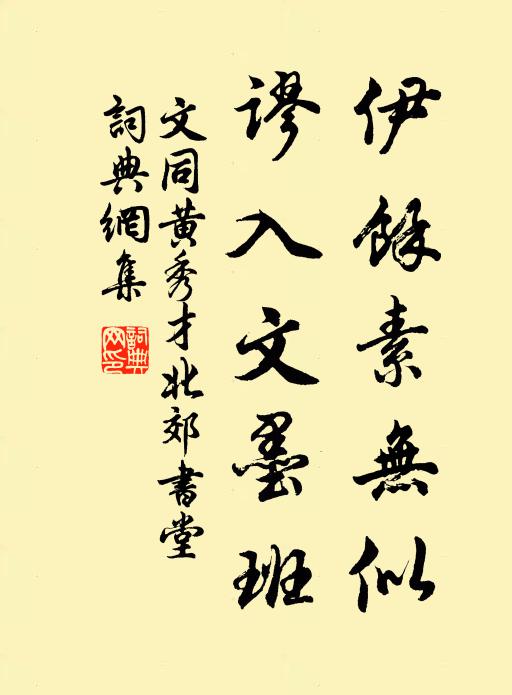 伊餘素無似
謬入文墨班
文同黃秀才北郊書堂
詞典網集
詞典網印